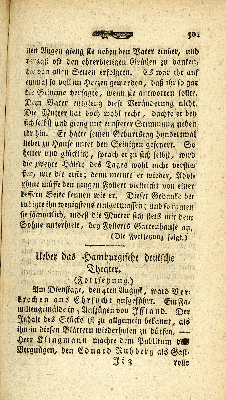 501
nen Augen gieng sie neben dem Vater einher, und
vergaß oft den ehrerbietigen Grüßen zu danken,
die von allen Seiten erfolgten. Es war ihr auf
einmal so voll im Herzen geworden, daß ihr so gar
die Stimme versagte, wenn sie antworten sollte.
Dem Vater entgieng diese Veränderung nicht.
Die Mutter hat doch wohl recht, dachte er bey
sich selbst und gieng mit ernsterer Stimmung neben
ihr hin. Er hätte seinen Geburtstag hundertmal
lieber zu Hause unter den Seinigen gefeyert. So
heiter und glücklich, sprach er zu sich selbst, wird
die zweyte Hälfte des Tages wohl nicht verstreichen
wie die erste; denn meinte er wieder,
mußte den jungen Follert vielleicht von einer
bessern Seite können wie er. Dieser Gedanke
sie sämmtlich, indeß die Mutter sich stets mit dem
Sohne unterhielt, bey Follerts Gartenhause an.
(Die Fortsetzung folgt.)
Ueber das Hamburgische deutsche
Theater.
(Fortsetzung.)
Am Dienstage, den 4ten August, ward Verbrechen
aus Ehrsucht aufgeführt. Ein Familiengemählde
in Aufzügen von Iffland. Der
Inhalt des Stücks ist zu allgemein bekannt, als
ihn in diesen Blättern wiederholen zu dürfen. —
Herr Klingmann machte dem Publikum
Vergnügen, den Eduard Ruhberg als Gast-
Ji 3 rolle